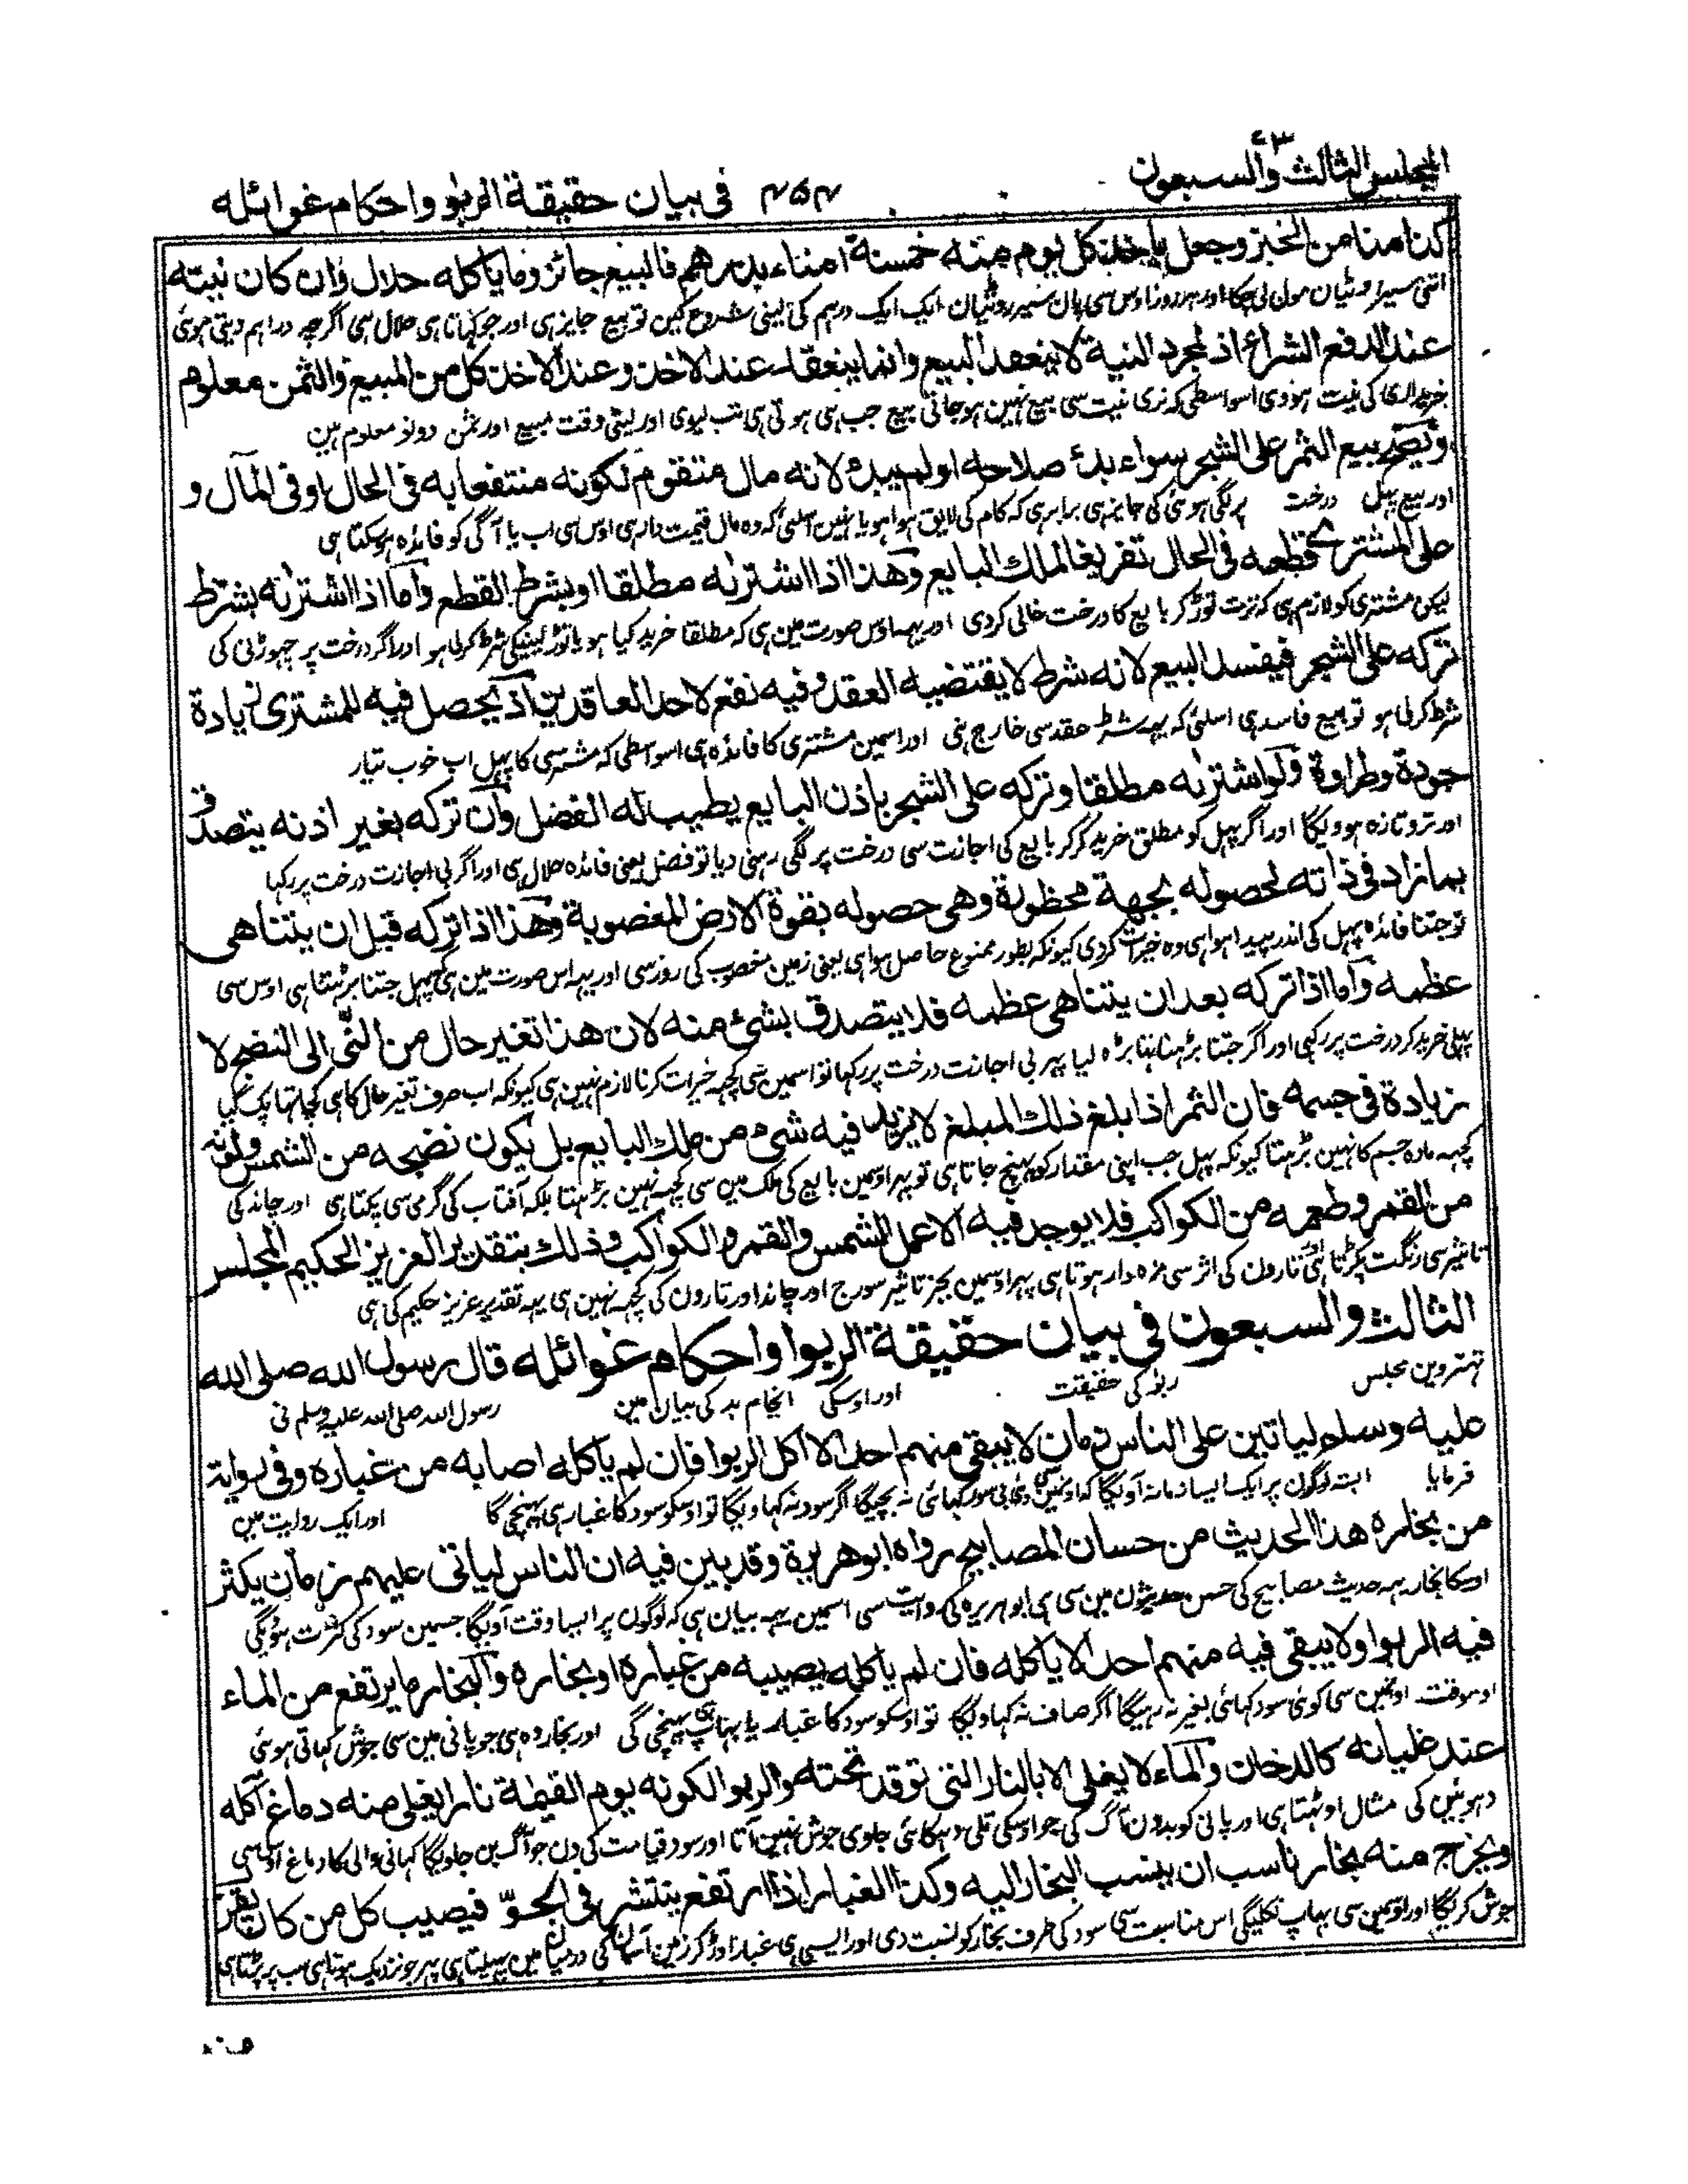 المجلس الثالث والسبعون ٤٥٤ فى بيان حقيقة الربو واحكام غوائله
كذا منا من الخبز وجعل ياخذ كل يوم منه خمسة امناء بدرهم فالبيع جائز وما ياكله حلال وان كان نيته
اتنى سير روٹيان مول لى چكا اور هر روز اوس سى پان سير روٹيان ايک ايک درہم كى لينى شروع كين تو بيع جايز ہى اور جو كہاتا ہى حلال ہى اگرچہ دراہم ديتى ہوئى
عند الدفع الشراء اذ لمجرد النية لا ينعقد البيع وانما ينعقد عند الاخذ وعند الاخذ كل من المبيع والثمن معلوم
خريدارى كى نيت ہووى اسواسطى كہ نرى نيت سى بيع نہين ہوجاتى بيع جب ہى ہوتى ہى تب ليوى اور ليتى وقت مبيع اور ثمن دونو معلوم ہين
ويصح بيع الثمر على الشجر سواء بدئ صلاحه او لم يبدء لانه مال متقوم لكونه منتفعا به فى الحال او فى المآل و
اور بيع پہل درخت پر لگى ہوئى كى جايز ہى برابر ہى كہ كام كى لايق ہوا ہو يا نہين اسلئى كہ وہ مال قيمت دار ہى اوس سى اب يا آگى كو فائدہ ہوسكتا ہى
على المشترى قطعه فى الحال تفريغا لملك البايع وهذا اذا اشتراه مطلقا او بشرط القطع واما اذا اشتراه بشرط
ليكن مشترى كو لازم ہى كہ ترت توڑ كر بايع كا درخت خالى كردى اور يہہ اوس صورت مين ہى كہ مطلقا خريد كيا ہو يا توڑ لينيكى شرط كرلى ہو اور اگر درخت پر چہوڑنى كى
تركه على الشجر فيفسد البيع لانه شرط لا يقتضيه العقد وفيه نفع لاحد العاقدين اذ يحصل فيه للمشترى زيادة
شرط كرلى ہو تو بيع فاسد ہى اسلئى كہ يہہ شرط عقد سى خارج ہى اور اسمين مشترى كا فائدہ ہى اسواسطى كہ مشترى كا پہل اب خوب تيار
جودة وطراوة ولو اشتراه مطلقا وتركه على الشجر باذن البايع يطيب له الفضل وان تركه بغير اذنه يتصدق
اور تروتازہ ہوويگا اور اگر پہل كو مطلق خريد كر كر بايع كى اجازت سى درخت پر لگى رہنى ديا تو فضل يعنى فائدہ حلال ہى اور اگر بى اجازت درخت پر ركہا
بما زاد فى ذاته لحصوله بجهة محظورة وهى حصوله بقوة الارض المغصوبة وهذا اذا تركه قبل ان يتناهى
تو جتنا فائدہ پہل كى اندر پيدا ہوا ہى وہ خيرات كردى كيونكہ بطور ممنوع حاصل ہوا ہى يعنى زمين مغصوب كى زور سى اور يہہ اس صورت مين ہى كہ پہل جتنا بڑہتا ہى اوس سى
عظمه واما اذا تركه بعد ان يتناهى عظمه فلا يتصدق بشئ منه لان هذا تغير حال من النّى الى النضج لا
پہلى خريد كر درخت پر ركہى اور اگر جتنا بڑہنا تہا بڑہ ليا پہر بى اجازت درخت پر ركہا تو اسمين سى كچہہ خيرات كرنا لازم نہين ہى كيونكہ اب صرف تغير حال كا ہى كچا تہا پک گيا
زيادة فى جسمه فان الثمر اذا بلغ ذلك المبلغ لا يزيد فيه شىء من ملك البايع بل يكون نضجه من الشمس ولونه
كچہہ مادہ جسم كا نہين بڑہتا كيونكہ پہل جب اپنى مقدار كو پہنچ جاتا ہى تو پہر اوسمين بايع كى ملک مين سى كچہہ نہين بڑہتا بلكہ آفتاب كى گرمى سى پكتا ہى اور چاند كى
من القمر وطعمه من الكواكب فلا يوجد فيه الا عمل الشمس والقمر والكواكب وذلك بتقدير العزيز الحكيم المجلس
تاثير سى رنگت پكڑتا ہى اور تارون كى اثر سى مزہ دار ہوتا ہى پہر اوسمين بجز تاثير سورج اور چاند اور تارون كى كچہہ نہين ہى يہہ تقدير عزيز حكيم كى ہى
الثالث والسبعون فى بيان حقيقة الربوا واحكام غوائله قال رسول الله صلى الله
تہتروين مجلس ربوا كى حقيقت اور اوسكى انجام بد كى بيان مين رسول الله صلى الله عليہ وسلم نى
عليه وسلم لياتين على الناس زمان لا يبقى منهم احد الا اكل الربوا فان لم ياكله اصابه من غباره وفى رواية
فرمايا البتہ لوگون پر ايک ايسا زمانہ آويگا كہ اونمين كوئى بى سود كہائى نہ بچيگا اگر سود نہ كہاويگا تو اوسكو سود كا غبار ہى پہنچى گا اور ايک روايت مين
من بخاره هذا الحديث من حسان المصابيح رواه ابو هريرة وقد بين فيه ان الناس لياتى عليهم زمان يكثر
اوسكا بخار يہہ حديث مصابيح كى حسن حديثون مين سى ہى ابو ہريرہ كى روايت سى اسمين يہہ بيان ہى كہ لوگون پر ايسا وقت آويگا جسمين سود كى كثرت ہوويگى
فيه الربوا ولا يبقى فيه منهم احد الا ياكله فان لم ياكله يصيبه من غباره او بخاره والبخار ما يرتفع من الماء
اوسوقت اونمين سى كوئى سود كہائى بغير نہ رہيگا اگر صاف نہ كہاويگا تو اوسكو سود كا غبار يا بہاپ ہى پہنچى گى اور بخار وہ ہى جو پانى مين سى جوش كہاتى ہوئى
عند غليانه كالدخان والماء لا يغلى الا بالنار التى توقد تحته والربوا لكونه يوم القيمة نارا يغلى منه دماغ آكله
دہوئين كى مثال اوٹہتا ہى اور پانى كو بدون آگ كى جو اوسكى تلى دہكائى جاوى جوش نہين آتا اور سود قيامت كى دن جو آگ بن جاويگا كہانى والى كا دماغ اوس سى
ويخرج منه بخار ناسب ان ينسب البخار اليه وكذا الغبار اذا ارتفع ينتشر فى الجوّ فيصيب كل من كان يقرب
جوش كريگا اور اوسمين سى بہاپ نكليگى اس مناسبت سى سود كى طرف بخار كو نسبت دى اور ايسى ہى غبار اوڑ كر زمين آسمان كى درميان مين پہيلتا ہى پہر جو نزديک ہوتا ہى سب پر پڑتا ہى